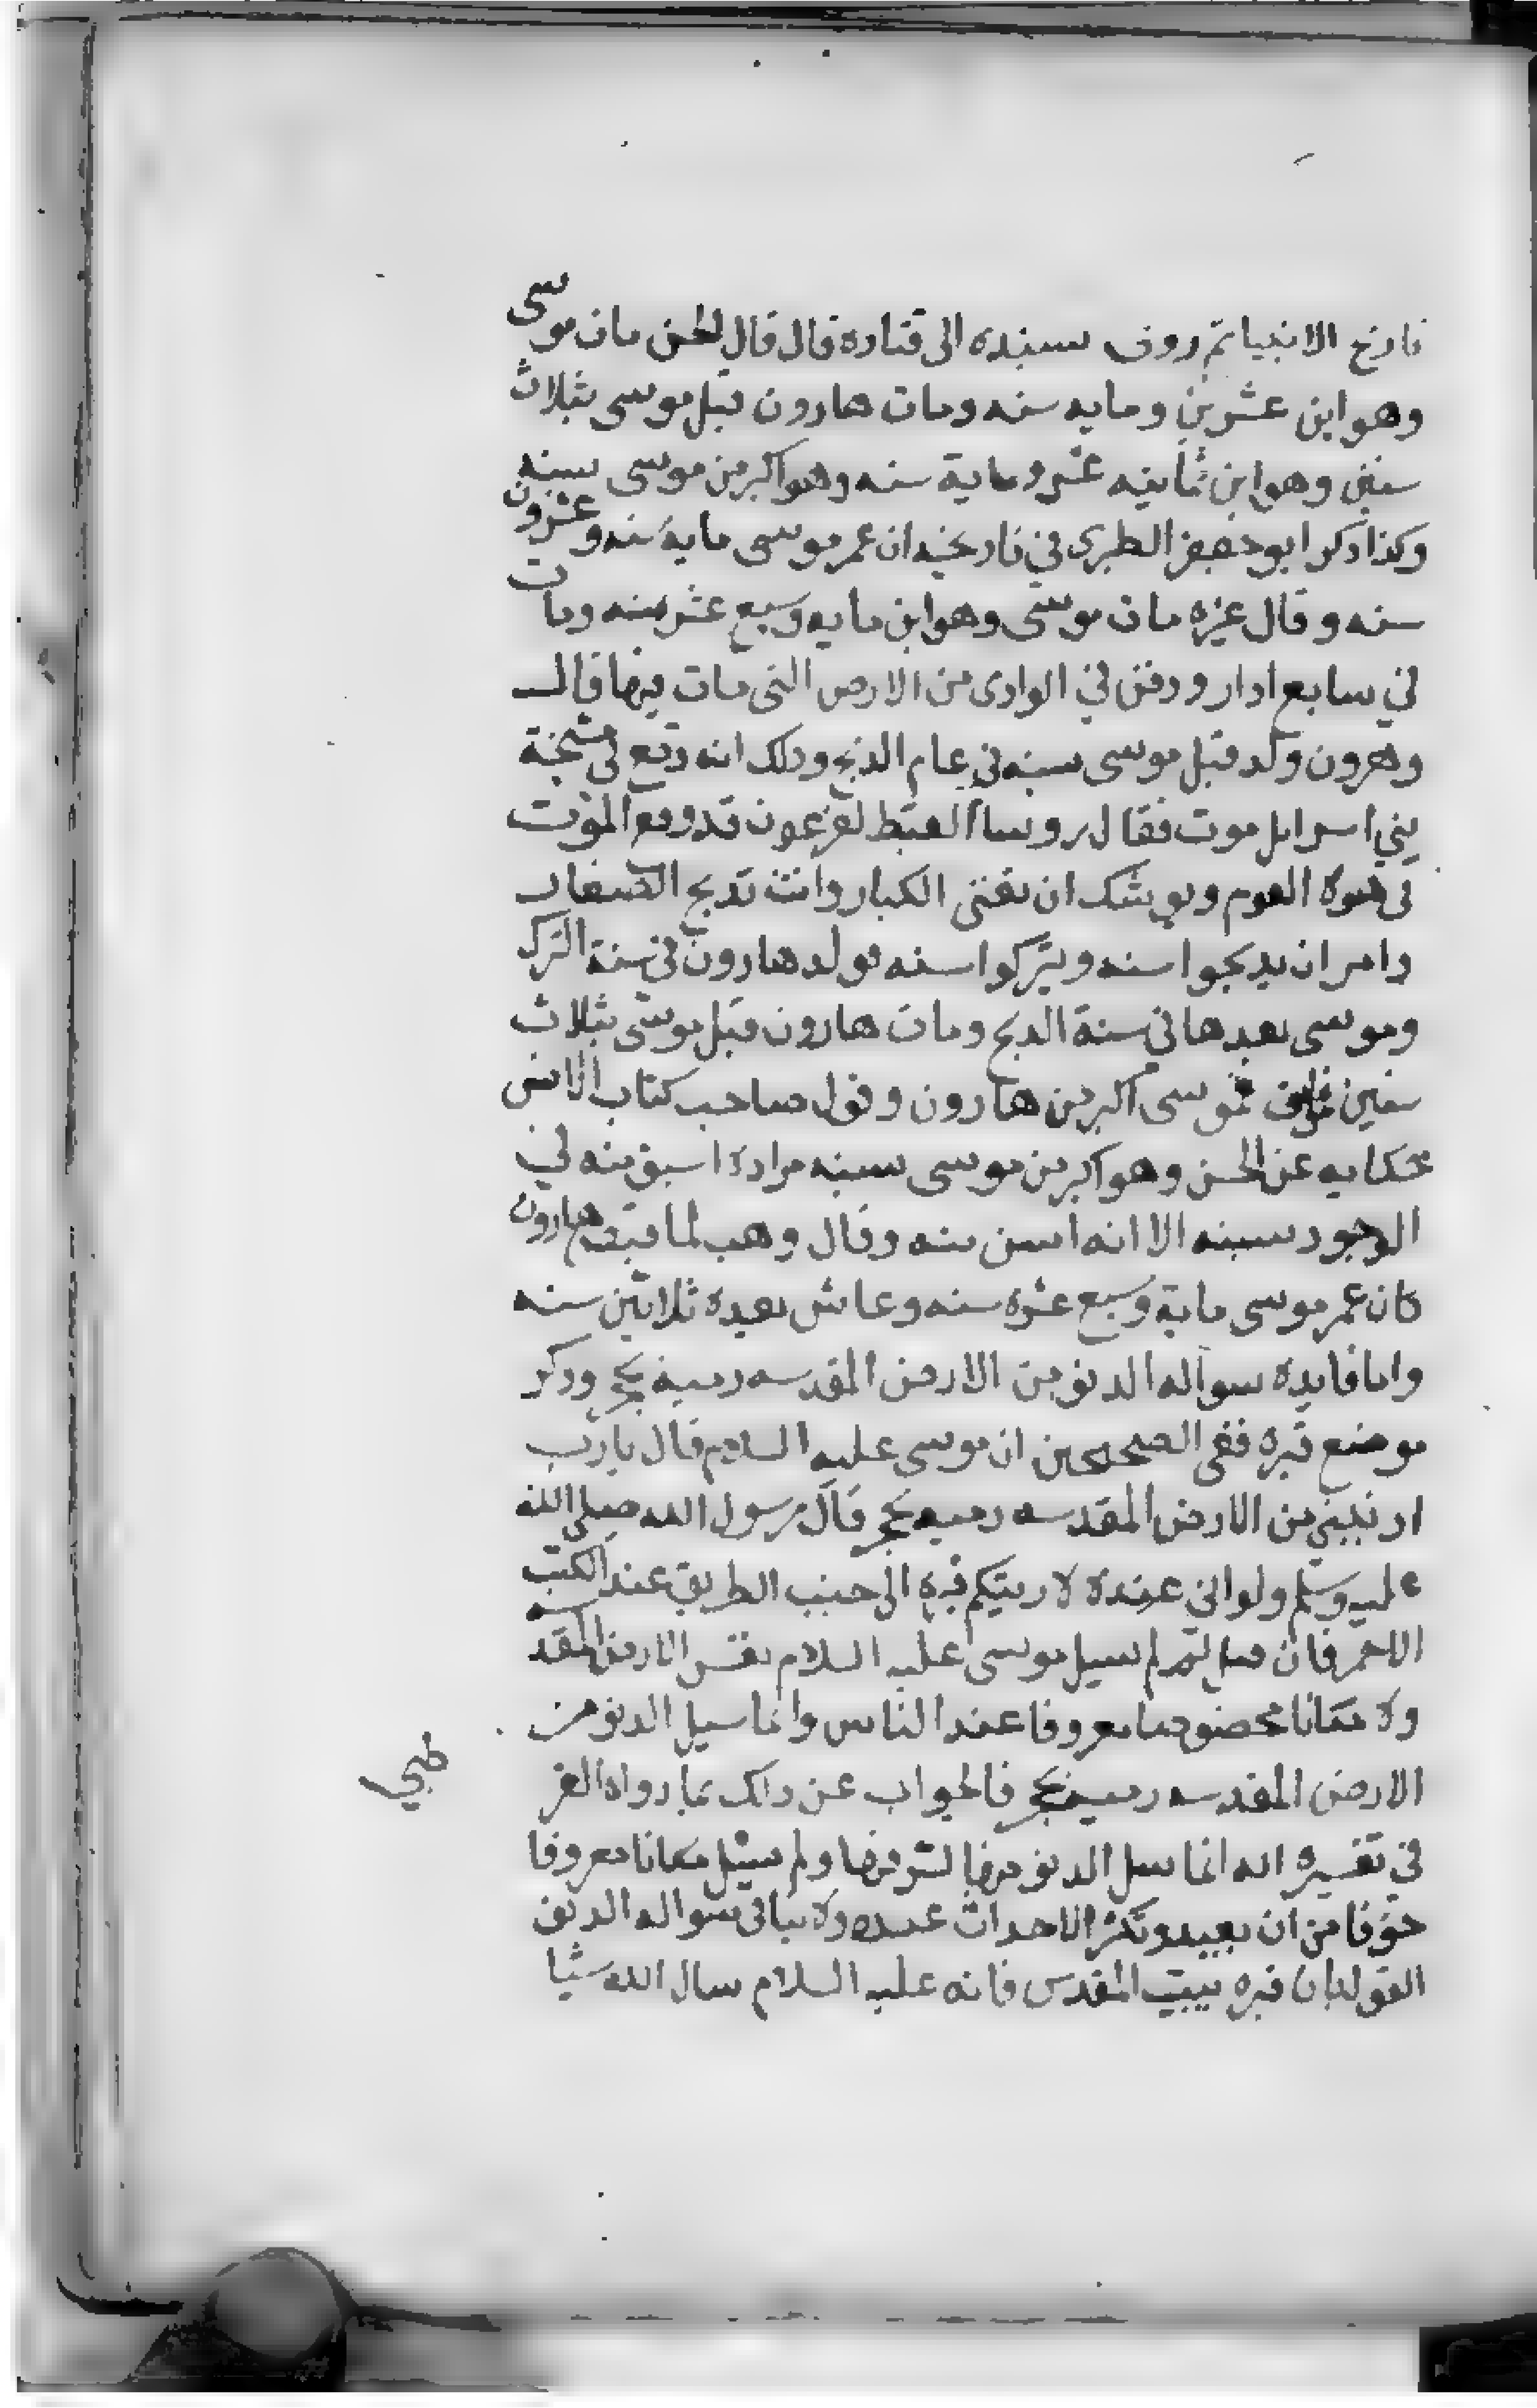 تاريخ الانبيا ثم روى بسنده الى قتاده قال قال الحسن مات موسى
وهو ابن عشرين ومايه سنه ومات هارون قبل موسى بثلاث
سنين وهو ابن ثمانيه عشر وماية سنه وهو اكبر من موسى بسنه
وكذا ذكر ابو جعفر الطبرى في تاريخه ان عمر موسى ماية سنه وعشرون
سنه وقال غيره مات موسى وهو ابن مايه وسبع عشر سنه ومات
في سابع ادار ودفن في الوادى من الارض التى مات فيها قال
وهرون ولد قبل موسى بسنه في عام الذبح وذلك انه وقع في مشيخة
بني اسرايل موت فقال روسا القبط لفرعون قد وقع الموت
في هولا القوم ويوشك ان تفنى الكبار وانت تذبح الصغار
وامر ان يذبحوا سنه ويتركوا سنه فولد هارون في سنة الترك
وموسى بعدها في سنة الذبح ومات هارون قبل موسى بثلاث
سنين موسى اكبر من هارون وقول صاحب كتاب الانس
حكايه عن الحسن وهو اكبر من موسى بسنه مراده اسبق منه في
الوجود بسنه الا انه اسن منه وقال وهب لما قبض هارون
كان عمر موسى ماية وسبع عشره سنه وعاش بعده ثلاثين سنه
واما فايدة سواله الدنو من الارض المقدسه رمية بحجر وذكر
موضع قبره ففى الصحيحين ان موسى عليه السلام قال يارب
ادنيني من الارض المقدسه رميه بحجر قال رسول الله صلى الله
عليه وسلم ولو اني عنده لاريتكم قبره الى جنب الطريق عند الكثيب
الاحمر فان قيل لم لم يسيل موسى عليه السلام نفس الارض المقدسه
ولا مكانا مخصوصا معروفا عند الناس وانما سيل الدنو من
الارض المقدسه رمية بحجر فالجواب عن ذلك بما رواه القر
طبي
في تفسيره انه انما سل الدنو منها لشرفها ولم يسيل مكانا معروفا
خوفا من ان يعبد وتكثر الاحداث عنده ولا ينافى سواله الدنو
القول بان قبره ببيت المقدس فانه عليه السلام سال الله شيا